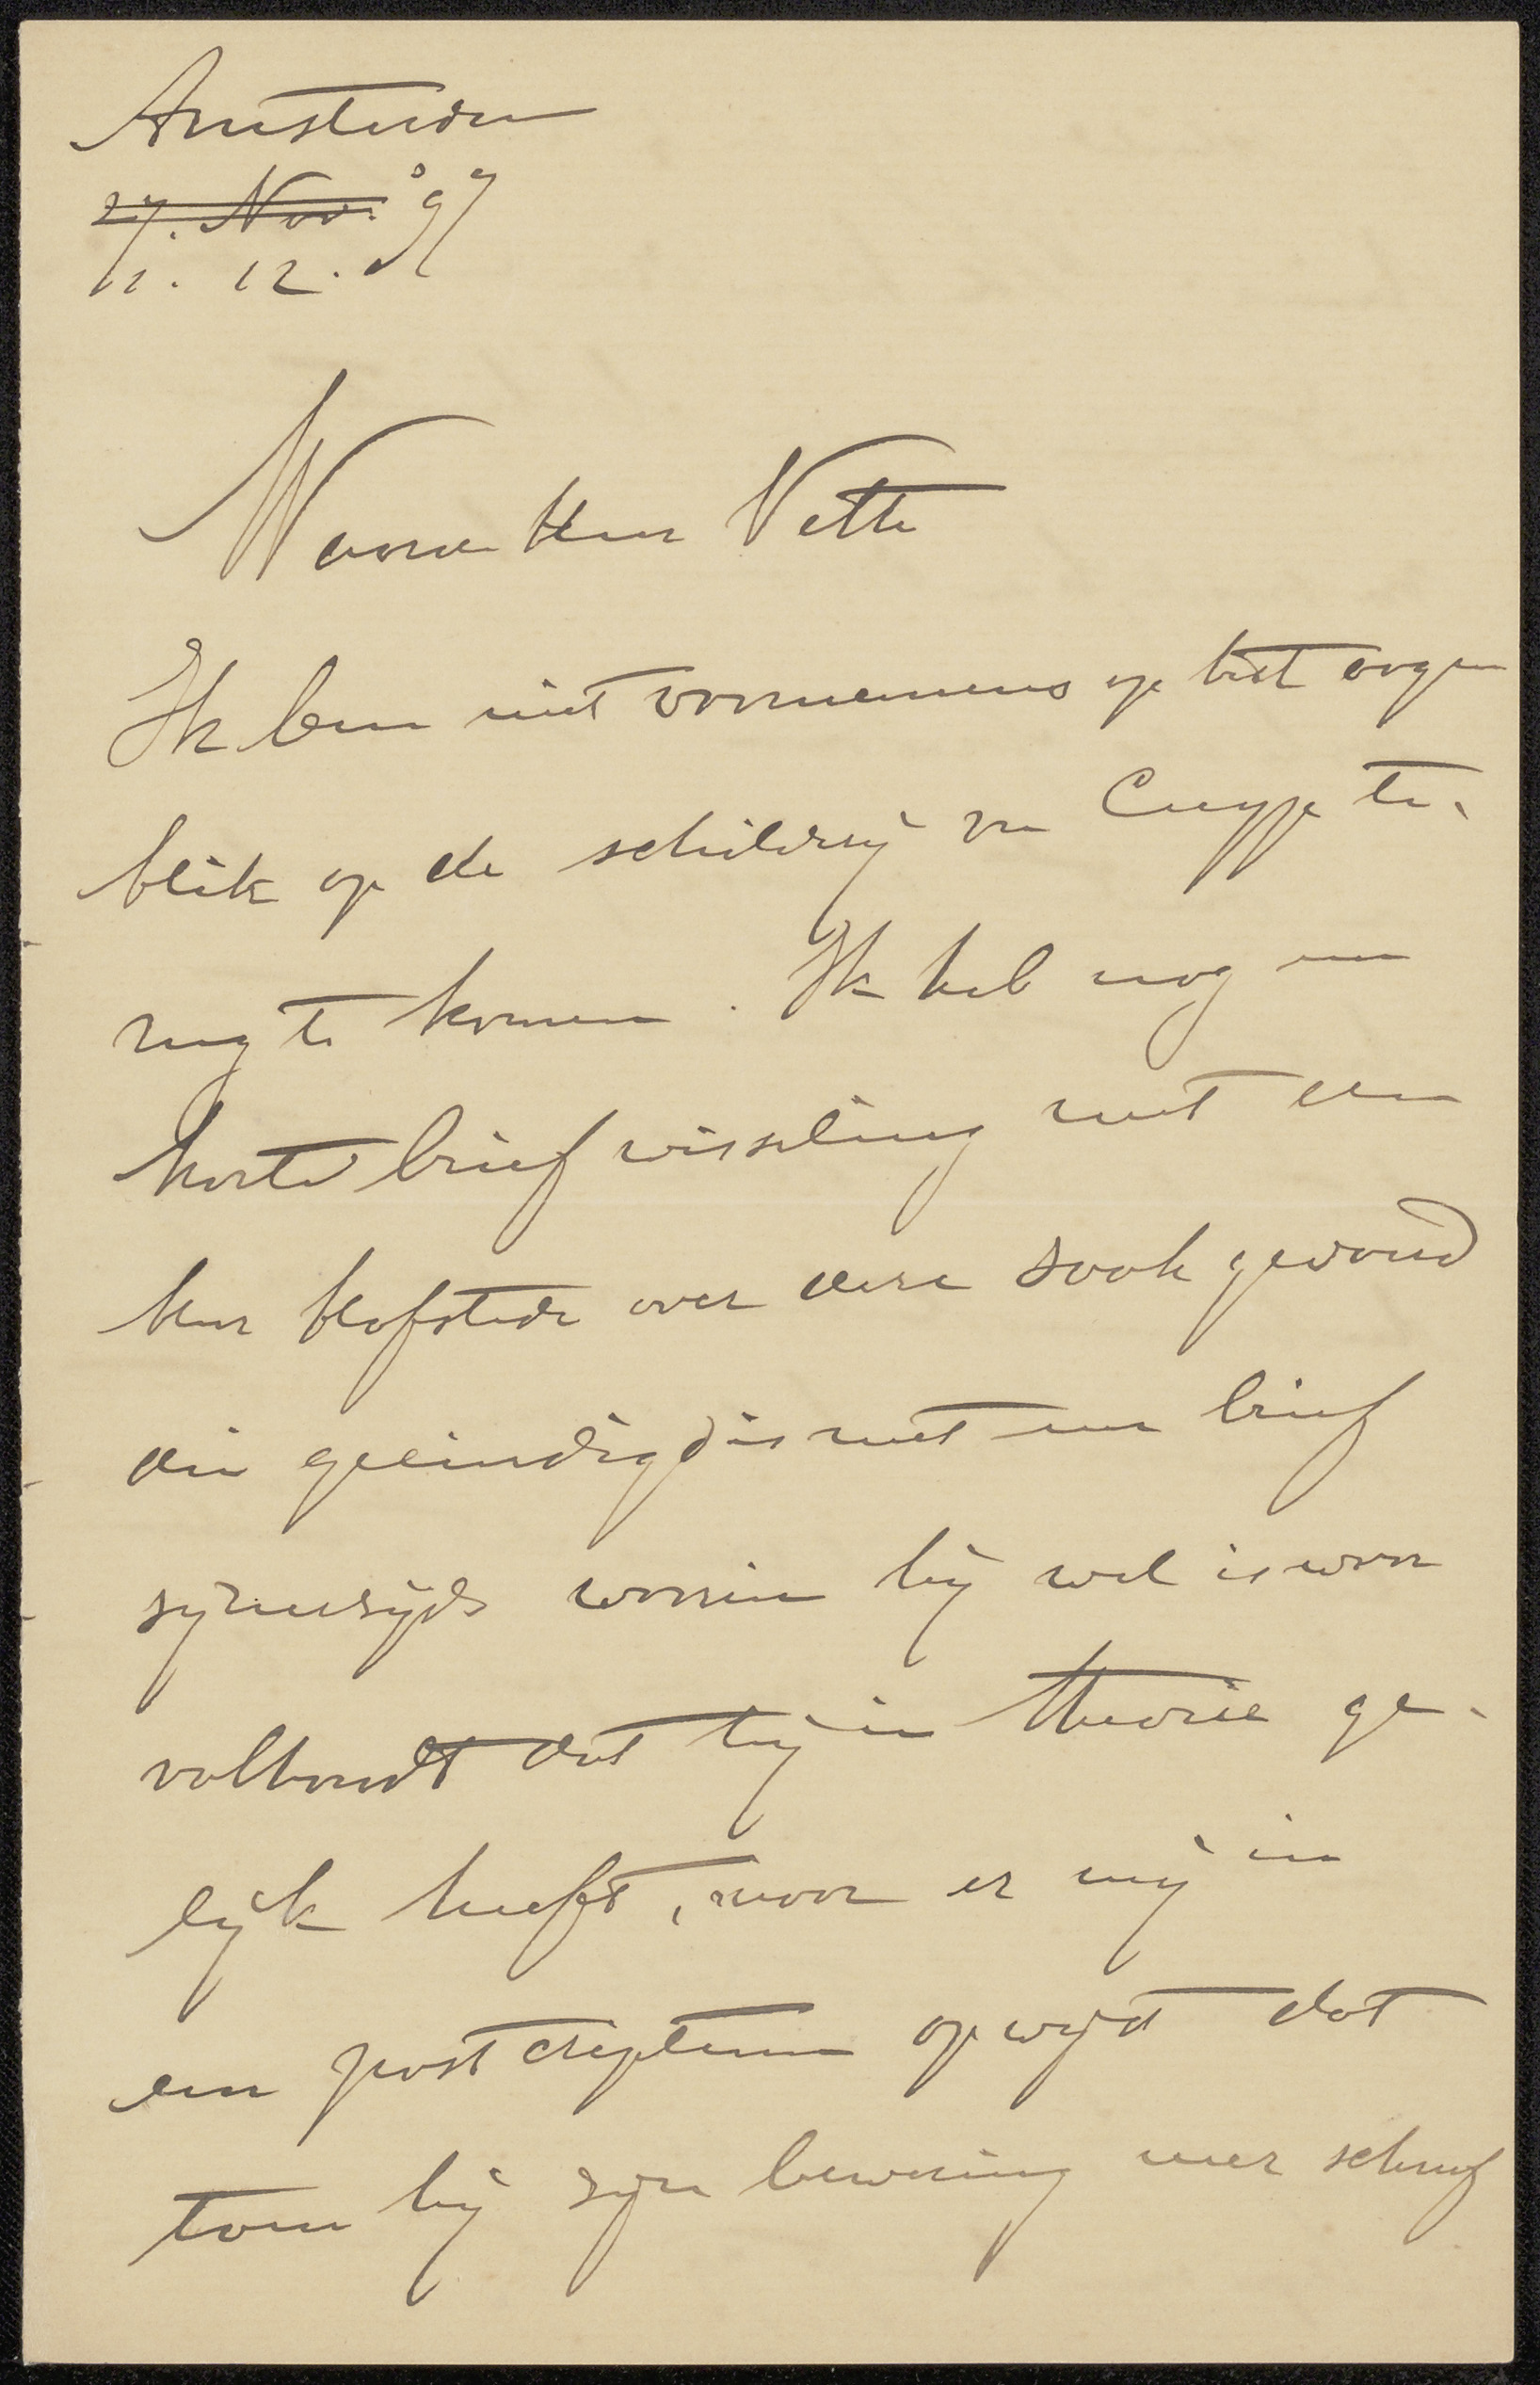 Amsterdam
27. Nov. '97
11. 12.
Waarde Heer Veth
Ik ben niet voornemens op het oogen
blik op de schilderij van Cuyp te-
rug te komen. Ik heb nog een
korte briefwisseling met den
heer Hofstede over deze zaak gevoerd
die geëindigd is met een brief
zijnerzijds waarin hij wel is waar
volhoudt dat hij in theorie ge-
lijk heeft, maar er mij in
een postcriptum op wijst dat
toen hij zijn bewering neer schreef